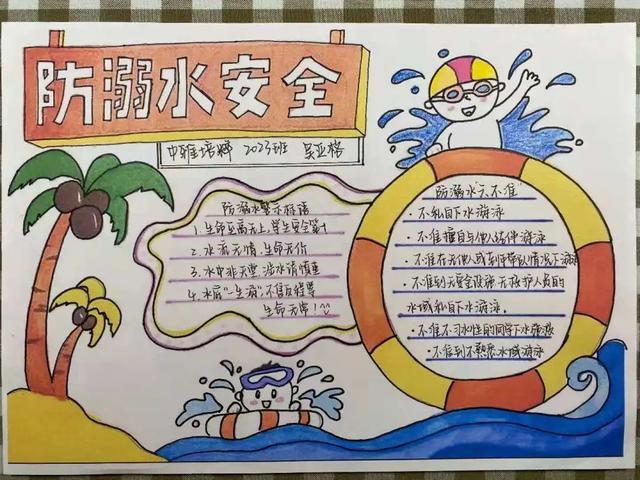 防溺水安全
中雅培粹 2023班 吴亚格
防溺水警示标语
1.生命至高无上,学生安全第一
2.水库无情 生命无价
3.水中非天堂,涉水请慎重
4.水痕"一生消",不售反程票
生命无常!
防溺水"六不准"
·不私自下水游泳
·不准擅自与他人结伴游泳
·不准在无他人或老师带队情况下游泳
·不准到无安全设施、无救护人员的
水域私自下水游泳.
·不准不习水性的同学下水施救
·不准到不熟悉水域游泳